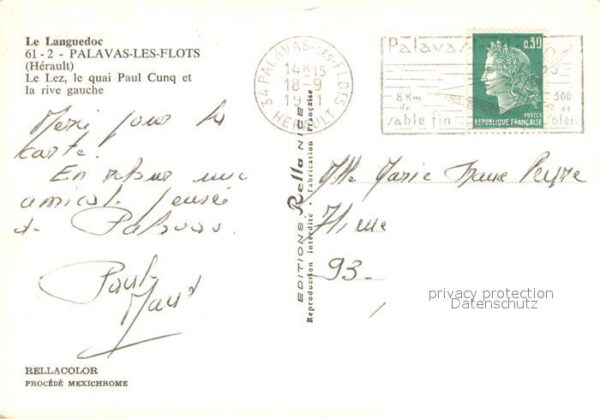 Le Languedoc
61 - 2 - PALAVAS-LES-FLOTS
(Hérault)
Le Lez, le quai Paul Cunq et
la rive gauche
Merci pour la
carte.
En retour une
amicale pensée
de Palavas.
Paul
RELLACOLOR
PROCÉDÉ MEXICHROME
EDITIONS Rella NICE
Reproduction interdite - Fabrication Française
34 PALAVAS-LES-FLOTS
14H15
18-9
19
HERAULT
Palavas
8 Km
de
sable fin
300
de
soleil
0,30
POSTES
REPUBLIQUE FRANÇAISE
Mlle Marie
93 -
privacy protection
Datenschutz